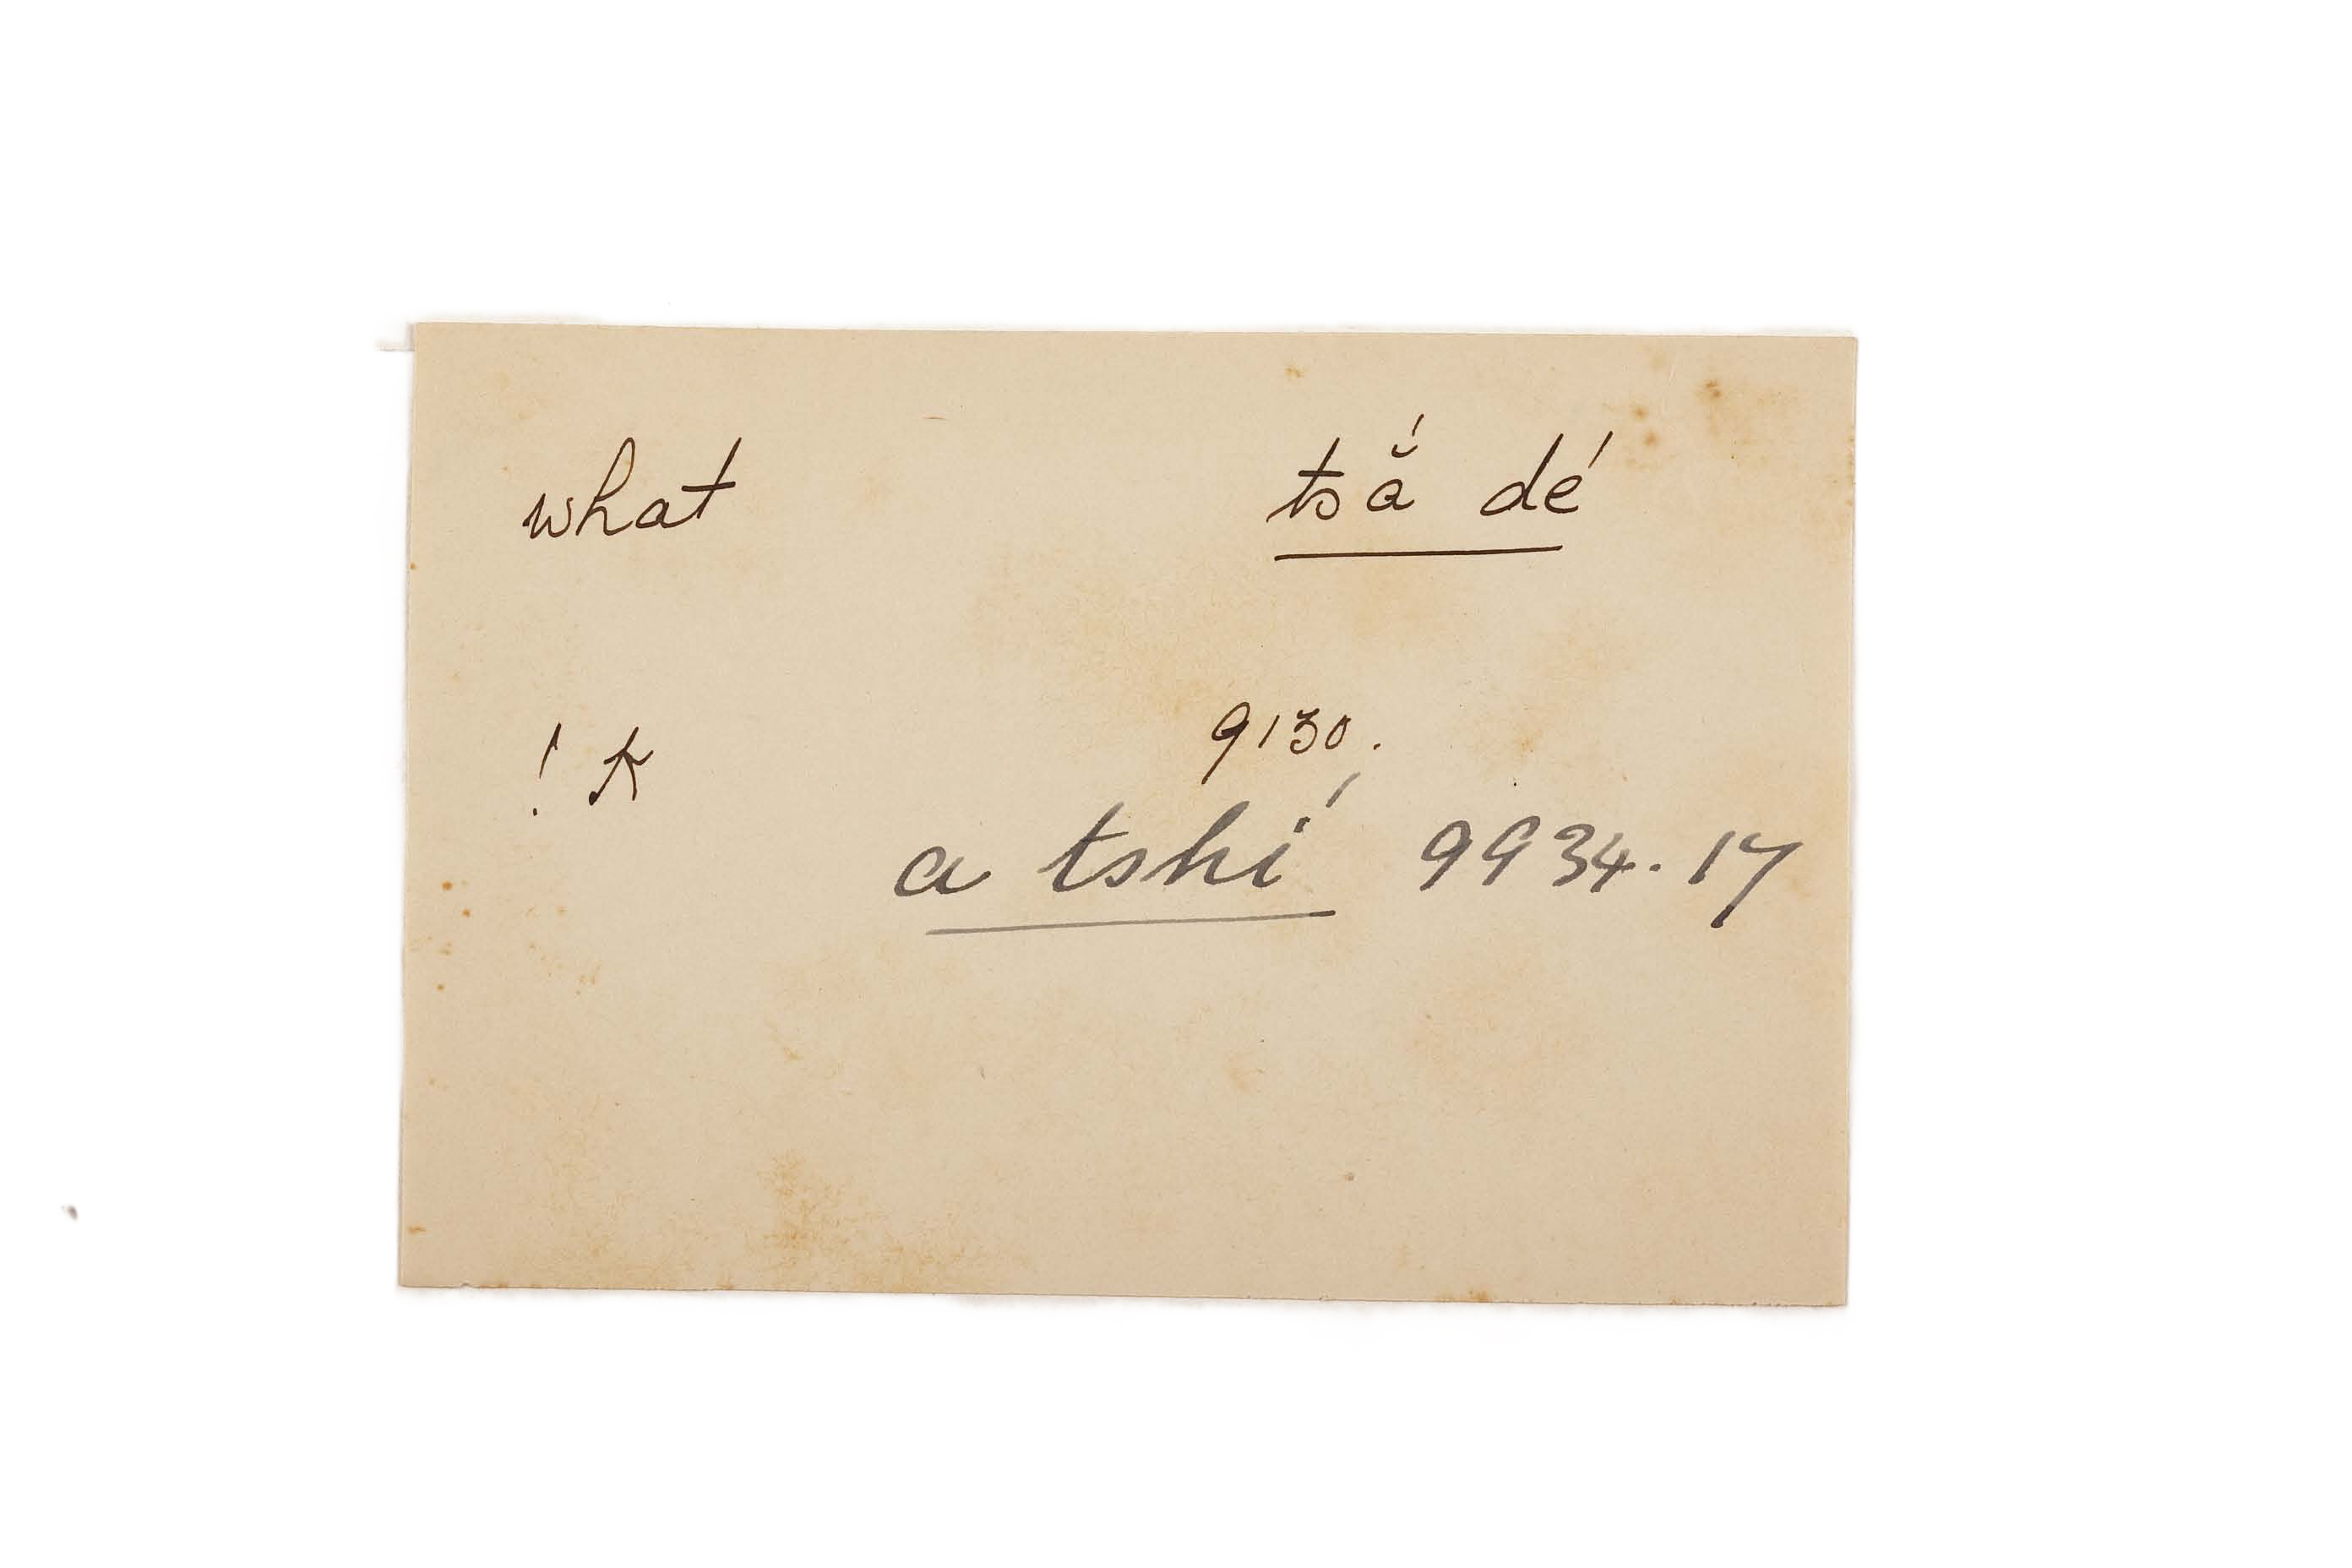 what tsắ dé
! k 9130.
a tshí 9934.17